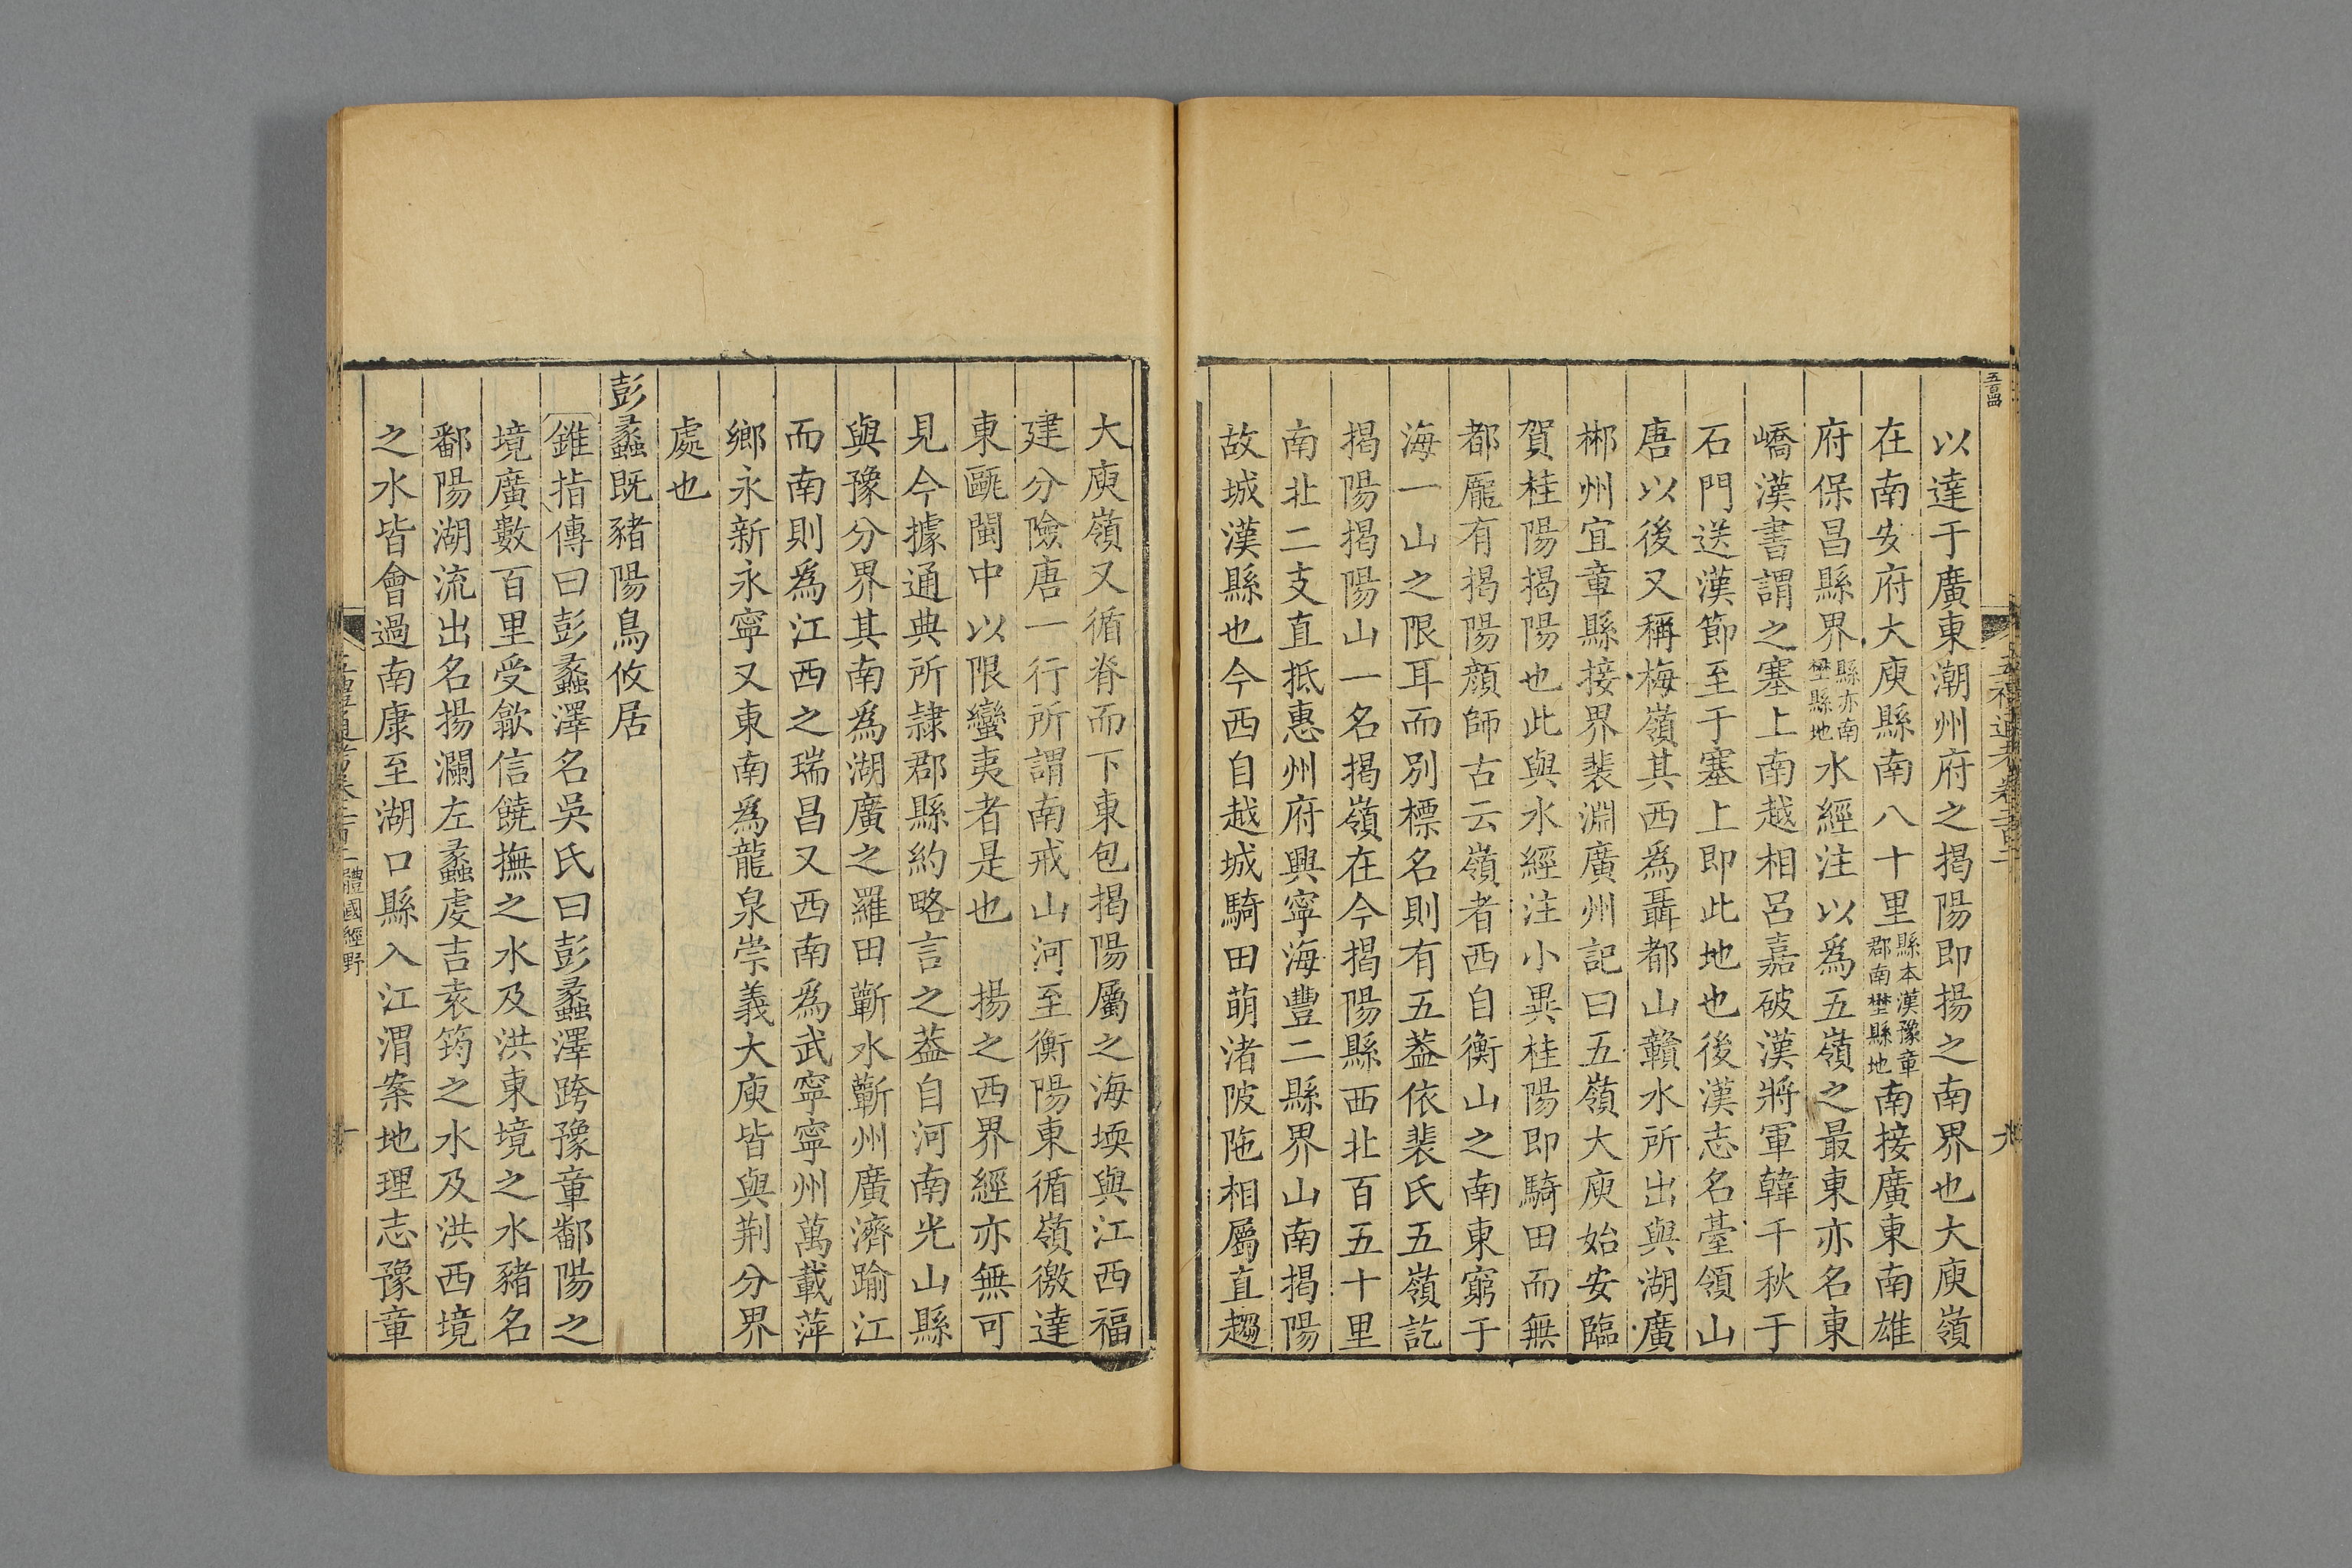 五百四
以達于廣東潮州府之揭陽即揚之南界也大庾嶺
在南安府大庾縣南八十里縣本漢豫章郡南壄縣地南接廣東南雄
府保昌縣界縣亦南壄縣地水經注以爲五嶺之最東亦名東
嶠漢書謂之塞上南越相呂嘉破漢將軍韓千秋于
石門送漢節至于塞上即此地也後漢志名臺領山
唐以後又稱梅嶺其西爲聶都山贛水所出與湖廣
郴州宜章縣接界裴淵廣州記曰五嶺大庾始安臨
賀桂陽揭陽也此與水經注小異桂陽即騎田而無
都龎有揭陽顔師古云嶺者西自衡山之南東窮于
海一山之限耳而別標名則有五葢依裴氏五嶺訖
揭陽揭陽山一名揭嶺在今揭陽縣西北百五十里
南北二支直抵惠州府興寧海豐二縣界山南揭陽
故城漢縣也今西自越城騎田萌渚陂陁相屬直趨
大庾嶺又循脊而下東包揭陽屬之海堧與江西福
建分險唐一行所謂南戒山河至衡陽東循嶺徼達
東甌閩中以限蠻夷者是也 揚之西界經亦無可
見今據通典所隷郡縣約略言之葢自河南光山縣
與豫分界其南爲湖廣之羅田蘄水蘄州廣濟踰江
而南則爲江西之瑞昌又西南爲武寧寧州萬載萍
鄉永新永寧又東南爲龍泉崇義大庾皆與荆分界
處也
彭蠡既豬陽鳥攸居
錐指傳曰彭蠡澤名吳氏曰彭蠡澤跨豫章鄱陽之
境廣數百里受歙信饒撫之水及洪東境之水豬名
鄱陽湖流出名揚瀾左蠡虔吉袁筠之水及洪西境
之水皆會過南康至湖口縣入江渭案地理志豫章
體國經野